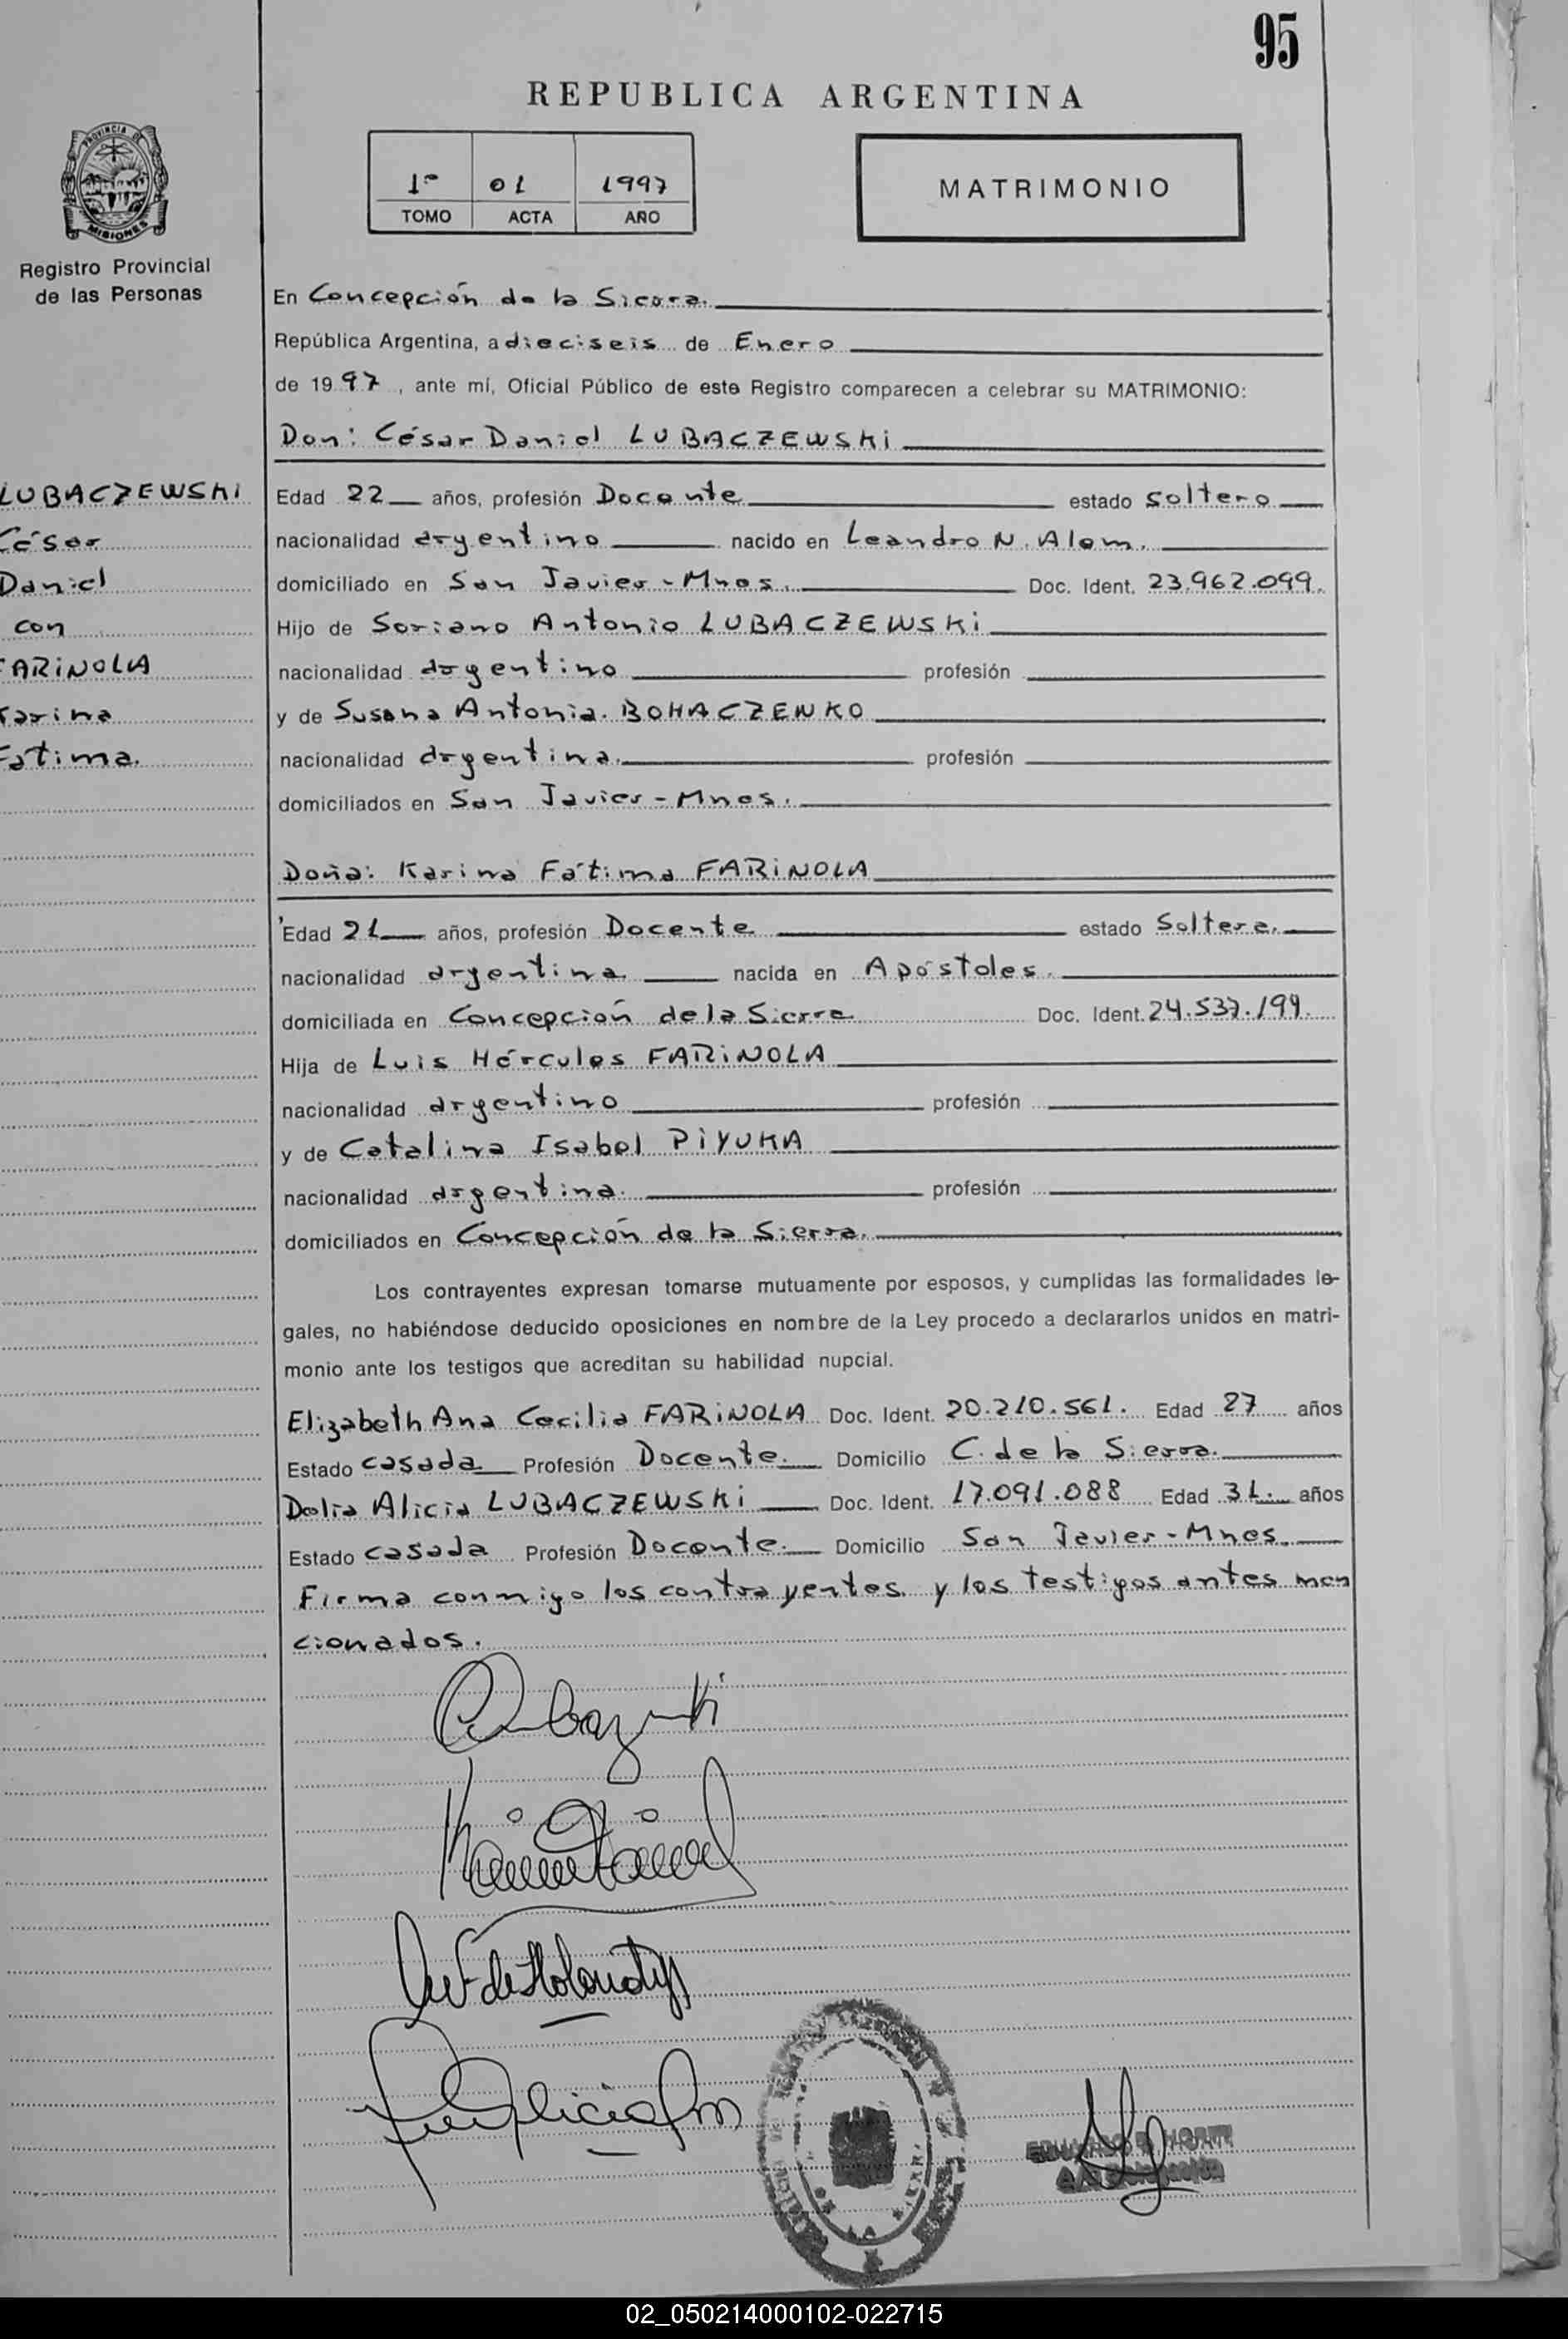 95
REPUBLICA ARGENTINA
1º 01 1997
TOMO ACTA AÑO
MATRIMONIO
PROVINCIA DE
MISIONES
Registro Provincial
de las Personas
LUBACZEWSKI
César
Daniel
con
FARINOLA
Karina
Fátima.
En Concepción de la Sierra.
República Argentina, a dieciseis de Enero
de 1997, ante mí, Oficial Público de este Registro comparecen a celebrar su MATRIMONIO:
Don: César Daniel LUBACZEWSKI
Edad 22 años, profesión Docente estado soltero
nacionalidad argentino nacido en Leandro N. Alem.
domiciliado en San Javier-Mnes. Doc. Ident. 23.962.099.
Hijo de Soriano Antonio LUBACZEWSKI
nacionalidad argentino profesión
y de Susana Antonia. BOHACZENKO
nacionalidad argentina. profesión
domiciliados en San Javier-Mnes.
Doña: Karina Fátima FARINOLA
Edad 21 años, profesión Docente estado Soltera.
nacionalidad argentina. nacida en Apóstoles.
domiciliada en Concepción de la Sierra Doc. Ident. 24.537.199.
Hija de Luis Hércules FARINOLA
nacionalidad argentino profesión
y de Catalina Isabel PIYUKA
nacionalidad argentina. profesión
domiciliados en Concepción de la Sierra.
Los contrayentes expresan tomarse mutuamente por esposos, y cumplidas las formalidades le-
gales, no habiéndose deducido oposiciones en nombre de la Ley procedo a declararlos unidos en matri-
monio ante los testigos que acreditan su habilidad nupcial.
Elizabeth Ana Cecilia FARINOLA Doc. Ident. 20.210.561. Edad 27 años
Estado casada Profesión Docente. Domicilio C. de la Sierra.
Delia Alicia LUBACZEWSKI Doc. Ident. 17.091.088 Edad 31. años
Estado casada Profesión Docente. Domicilio San Javier-Mnes.
Firma conmigo los contrayentes. y los testigos antes men
cionados.
02_050214000102-022715